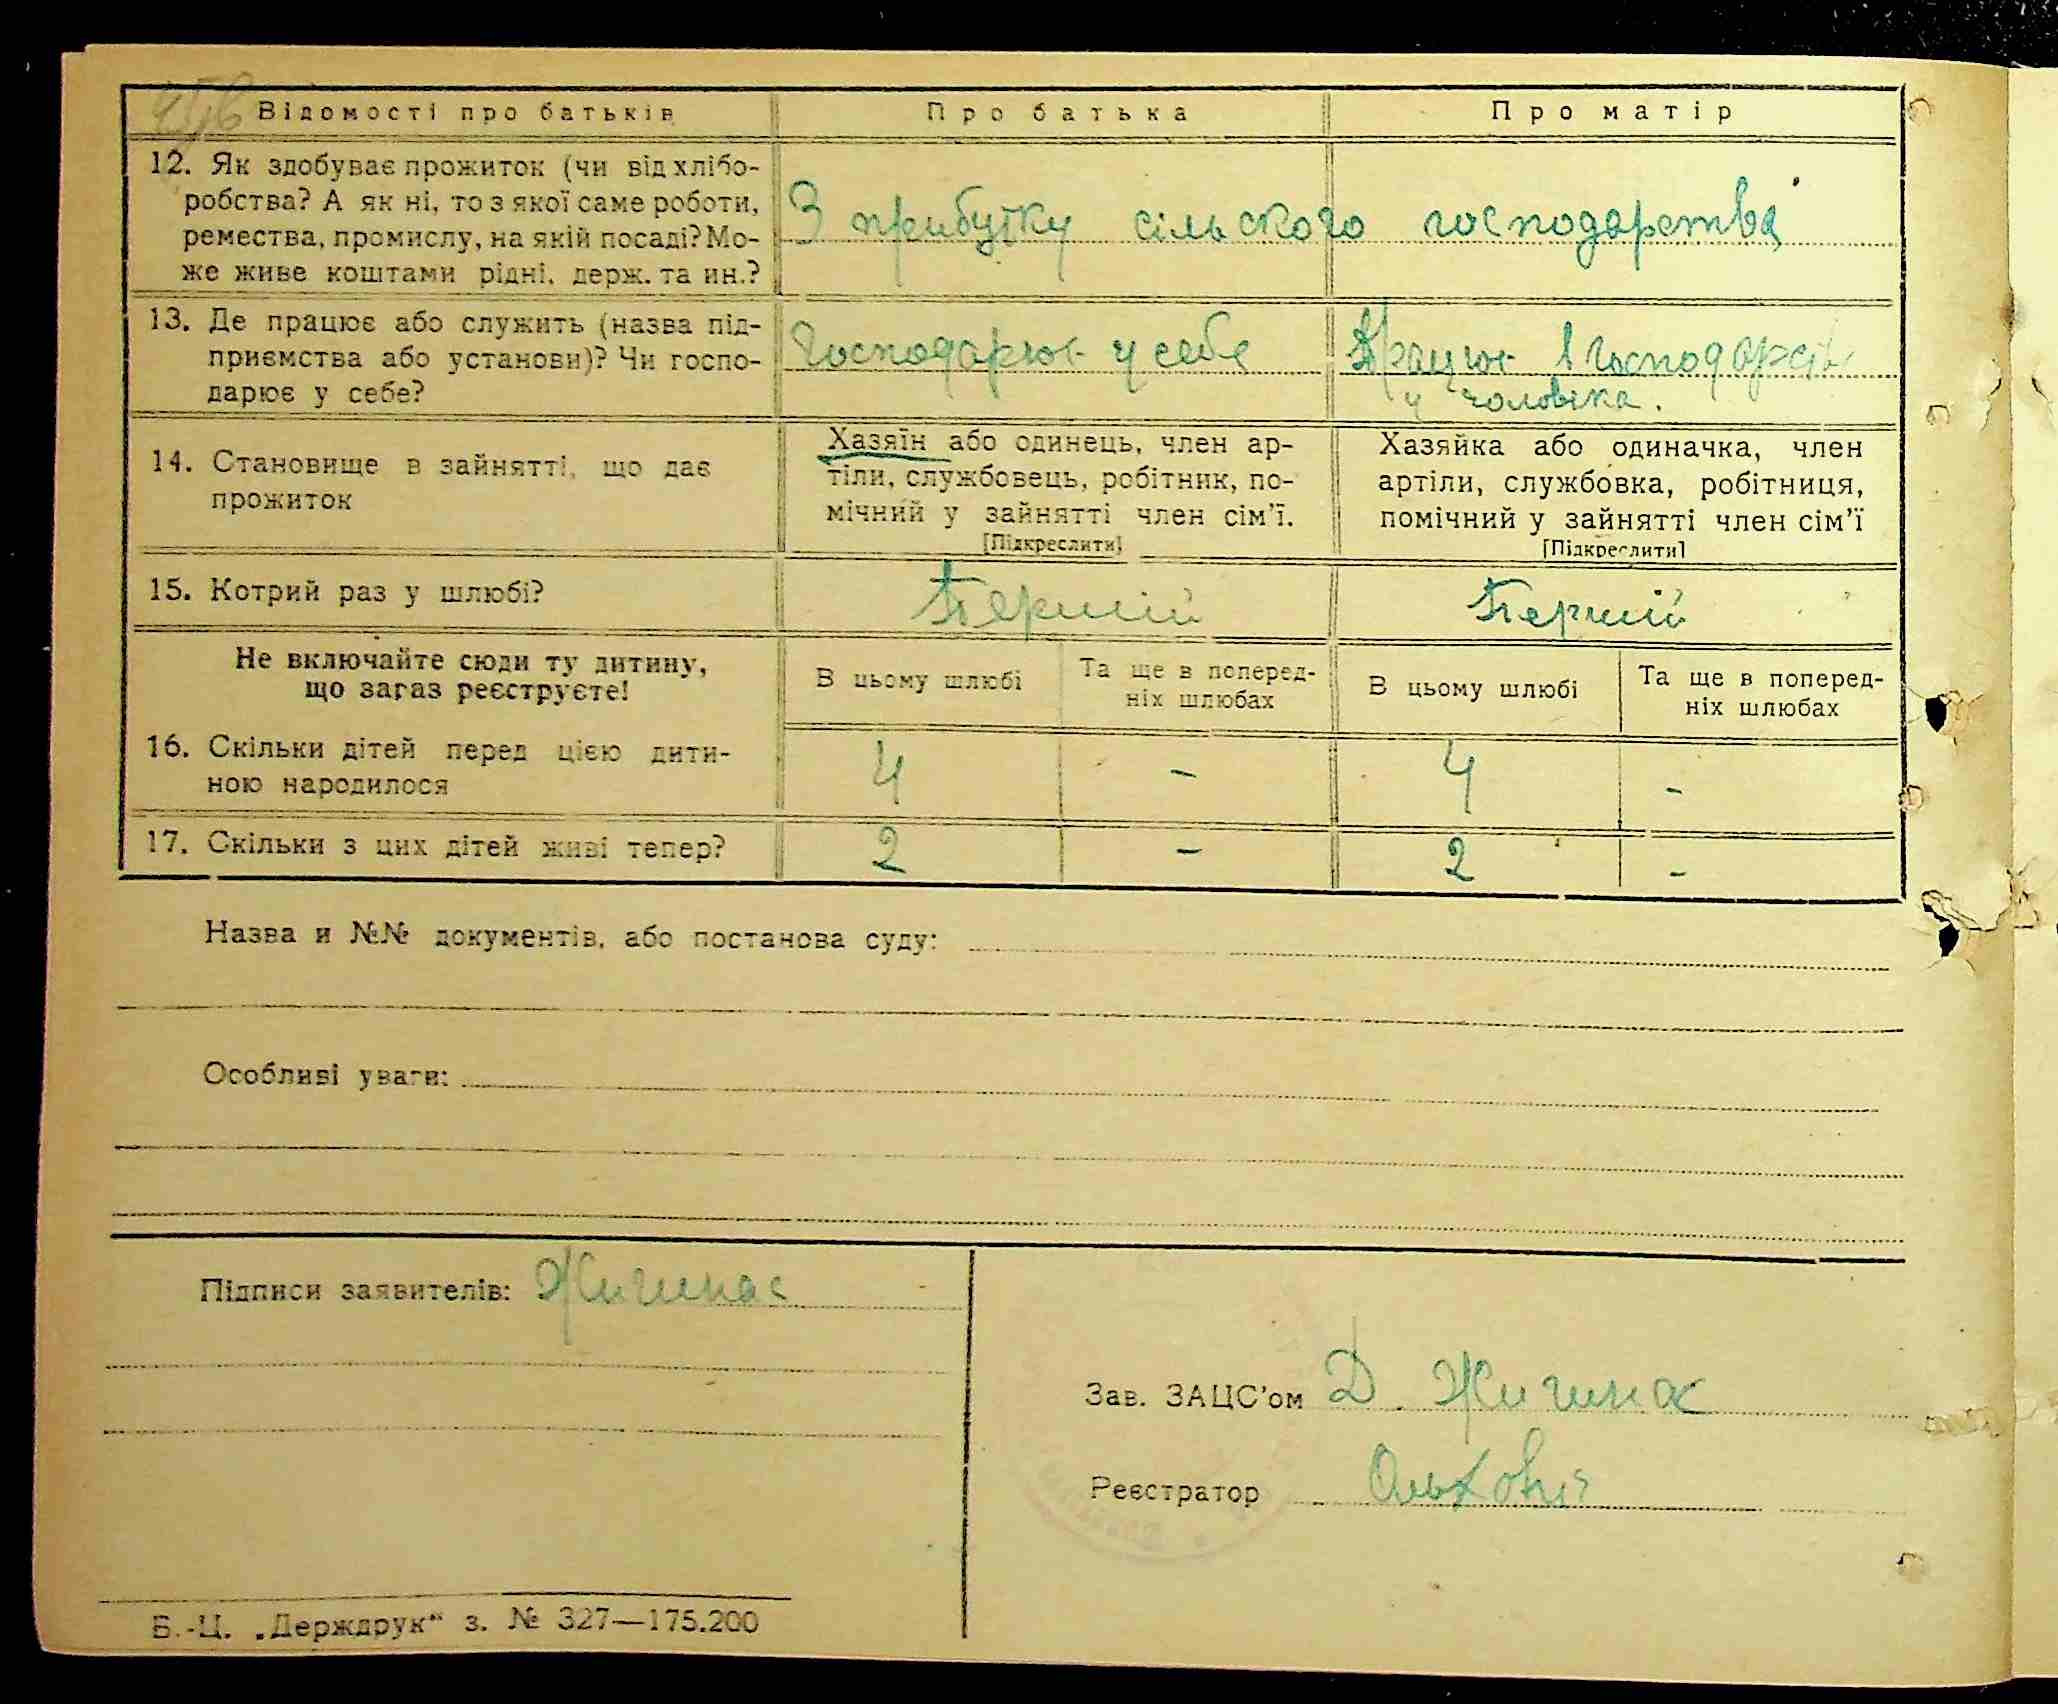 Відомості про батьків
Про батька
Про матір
12. Як здобуває прожиток (чи від хлібо-
робства? А як ні, то з якої саме роботи,
ремества, промислу, на якій посаді? Мо-
же живе коштами рідні, держ. та ин.?
З прибутку сільского господарства
13. Де працює або служить (назва під-
приємства або установи)? Чи госпо-
дарює у себе?
Господарює у себе
Працює в господарстві
у чоловіка.
14. Становище в зайнятті, що дає
прожиток
Хазяїн або одинець, член ар-
тіли, службовець, робітник, по-
мічний у зайнятті член сім'ї.
[Підкреслити]
Хазяйка або одиначка, член
артіли, службовка, робітниця,
помічний у зайнятті член сім'ї
[Підкреслити]
15. Котрий раз у шлюбі?
Перший
Перший
Не включайте сюди ту дитину,
що зараз реєструєте!
В цьому шлюбі
Та ще в поперед-
ніх шлюбах
В цьому шлюбі
Та ще в поперед-
ніх шлюбах
16. Скільки дітей перед цією дити-
ною народилося
4
-
4
-
17. Скільки з цих дітей живі тепер?
2
-
2
-
Назва и №№ документів, або постанова суду:
Особливі уваги:
Підписи заявителів:
Зав. ЗАЦС'ом Д.
Реєстратор
Б.-Ц. „Держдрук“ з. № 327—175.200